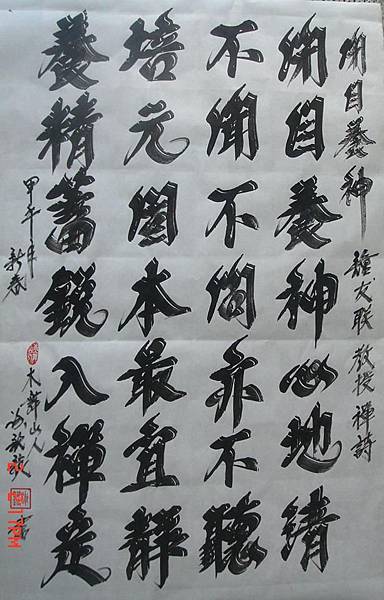 閉目養神 鍾友联 教授禪詩
閉目養神心地清
不聞不問亦不聽
培元固本最宜靜
養精蓄銳入禪定
甲午年
新春
山人